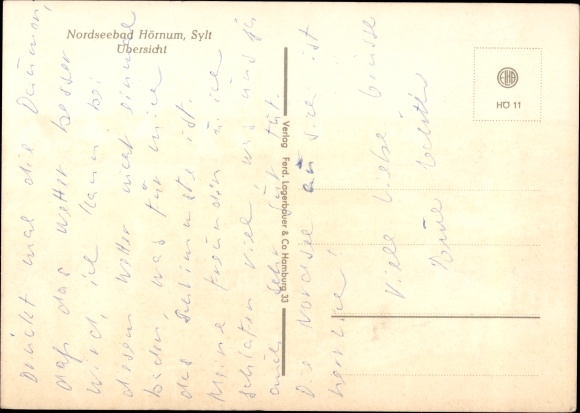 Nordseebad Hörnum, Sylt
Übersicht
Drückt mal die Daumen,
daß das Wetter besser
wird, ich kann bei
diesem Wetter nicht einmal
baden, was für mich
das Schlimmste ist.
Meine Freundin u. ich
schlafen viel, was uns ja
auch sehr gut tut.
Die Nordsee an sich ist
herrlich!
Viele liebe Grüsse
Eure
Verlag Ferd. Lagerbauer & Co Hamburg 33
HÖ 11